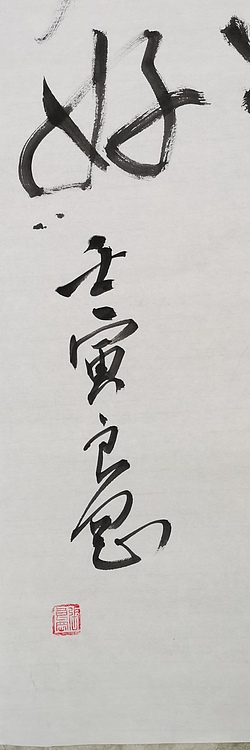 好
壬寅良墨